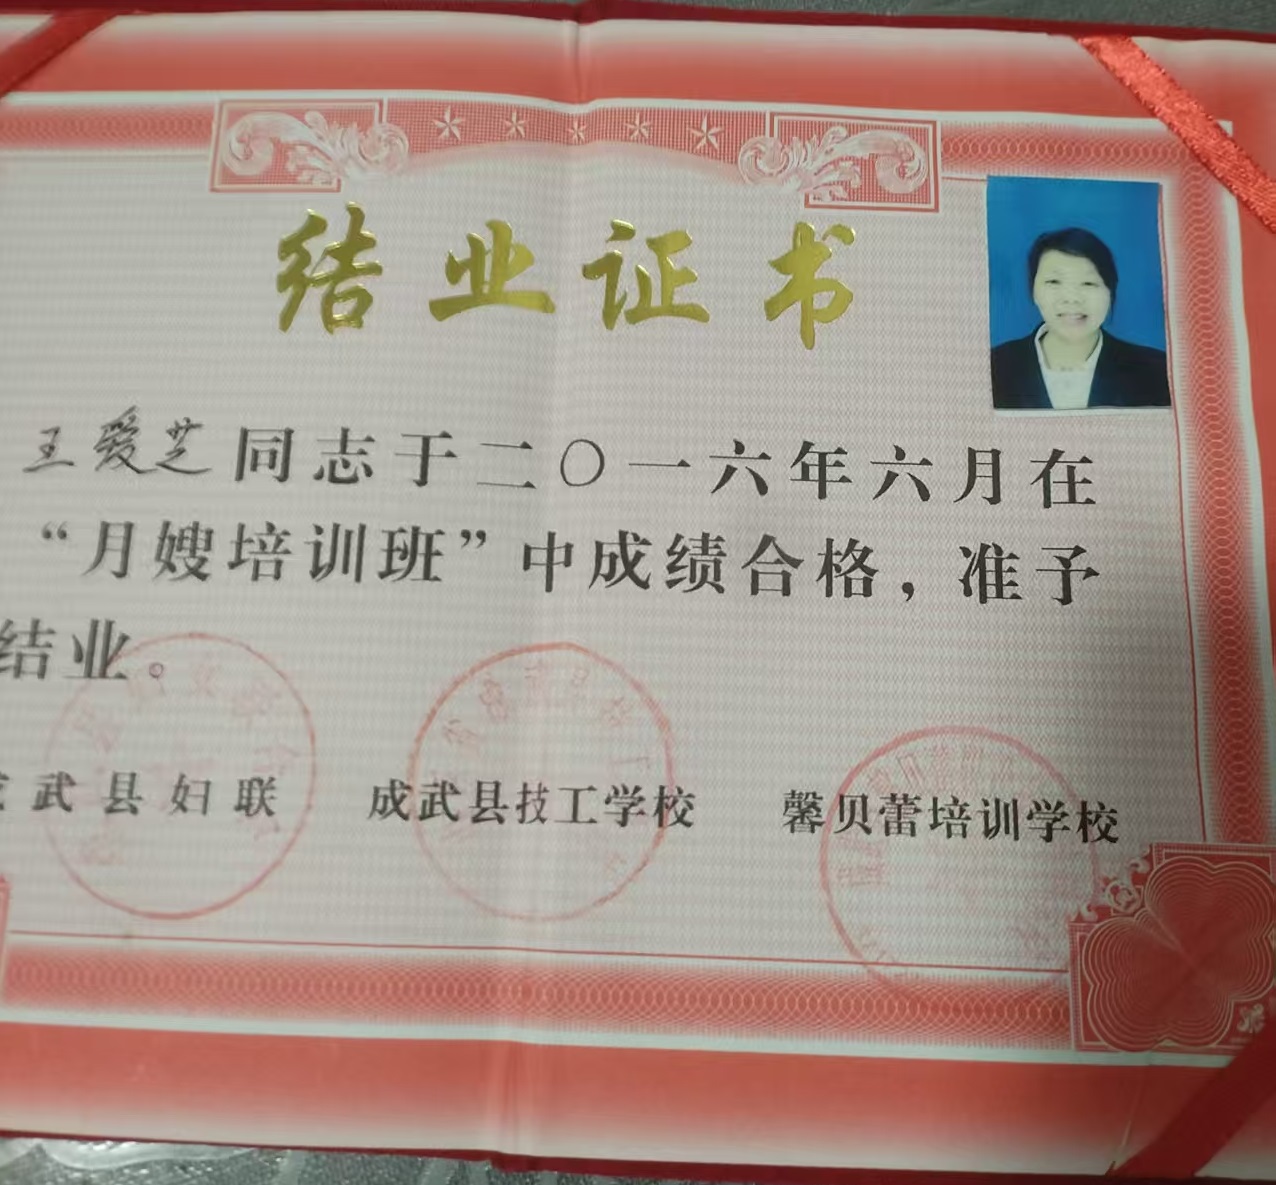 结业证书
王爱芝同志于二〇一六年六月在
“月嫂培训班”中成绩合格，准予
结业。
武县妇联 成武县技工学校 馨贝蕾培训学校